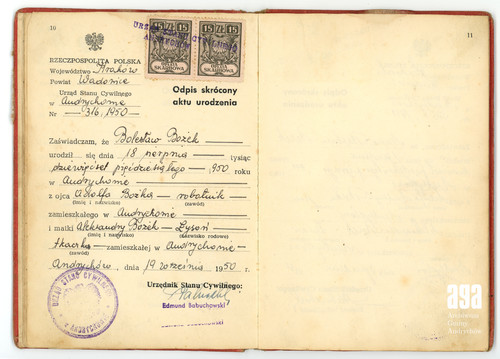 10
RZECZPOSPOLITA POLSKA
Województwo Kraków
Powiat Wadowice
Urząd Stanu Cywilnego
w Andrychowie
Nr 316/1950
15 ZŁ 15
15 ZŁ 15
OPŁATA SKARBOWA
OPŁATA SKARBOWA
URZĄD STANU CYWILNEGO
ANDRYCHÓW
Odpis skrócony
aktu urodzenia
Zaświadczam, że Bolesław Bożek
urodził się dnia 18 sierpnia tysiąc
dziewięćset pięćdziesiątego 950 roku
w Andrychowie
z ojca Adolfa Bożka robotnik
(imię i nazwisko) (zawód)
zamieszkałego w Andrychowie
i matki Aleksandry Bożek - Łysoń
(imię i nazwisko) (nazwisko rodowe)
tkaczka zamieszkałej w Andrychowie
(zawód)
Andrychów, dnia 19 września 1950 r.
Urzędnik Stanu Cywilnego:
URZĄD STANU CYWILNEGO
w ANDRYCHOWIE
11
aga
Archiwum
Gminy
Andrychów